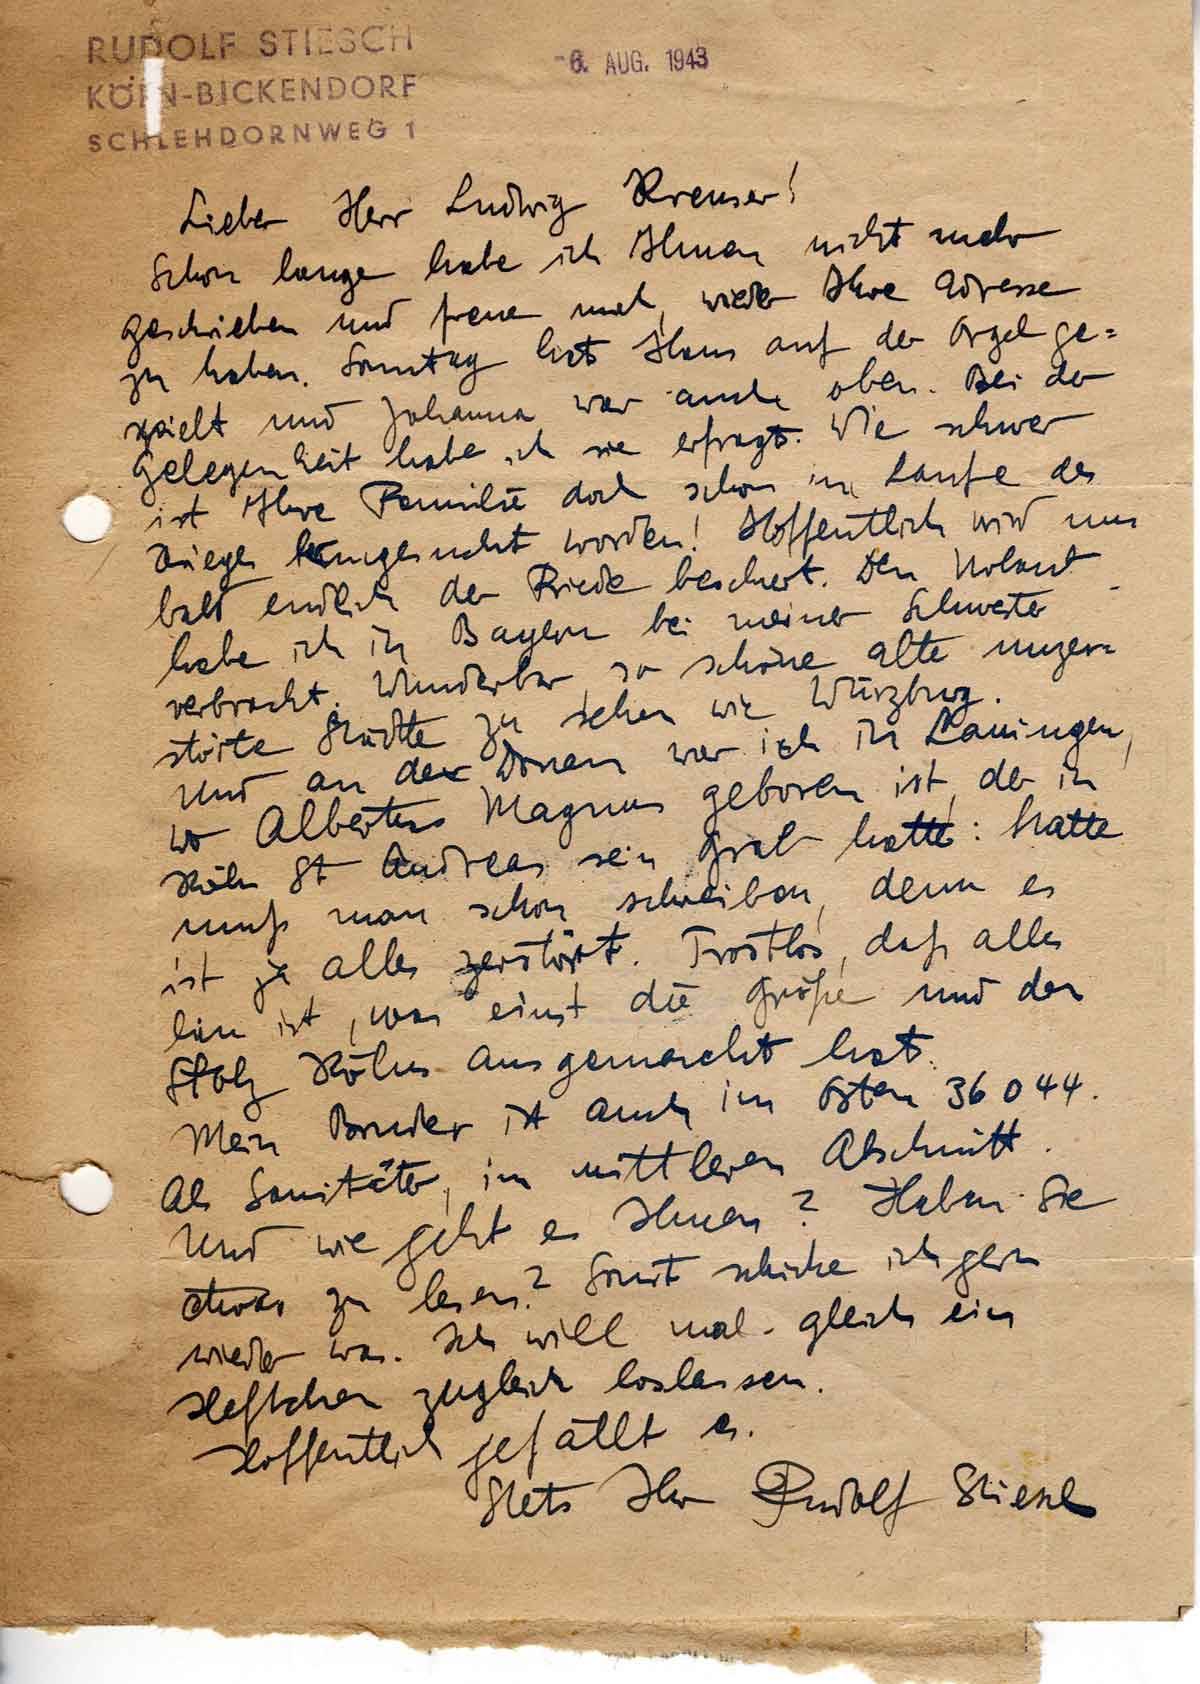 RUDOLF STIESCH
KÖLN-BICKENDORF
SCHLEHDORNWEG 1
-6. AUG. 1943
Lieber Herr Ludwig Kreuser!
Schon lange habe ich Ihnen nicht mehr
geschrieben und freue mich, wieder Ihre Adresse
zu haben. Sonntag hat Hans auf der Orgel ge=
spielt und Johanna war auch oben. Bei der
Gelegenheit habe ich sie erfragt. Wie schwer
ist Ihre Familie doch schon im Laufe des
Krieges heimgesucht worden! Hoffentlich wird uns
bald endlich der Friede beschert. Den Urlaub
habe ich in Bayern bei meiner Schwester
verbracht. Wunderbar, so schöne alte unzer=
störte Städte zu sehen wie Würzburg.
Und an der Donau war ich in Lauingen,
wo Albertus Magnus geboren ist, der in
Köln St Andreas sein Grab hatte: hatte
muß man schon schreiben, denn es
ist ja alles zerstört. Trostlos, daß alles
hin ist, was einst die Größe und den
Stolz Kölns ausgemacht hat.
Mein Bruder ist auch im Osten 36044.
Als Sanitäter, im mittleren Abschnitt.
Und wie geht es Ihnen? Haben Sie
etwas zu lesen? Sonst schicke ich gern
wieder was. Ich will mal gleich ein
Heftchen zugleich loslassen.
Hoffentlich gefällt es.
Stets Ihr Rudolf Stiesch